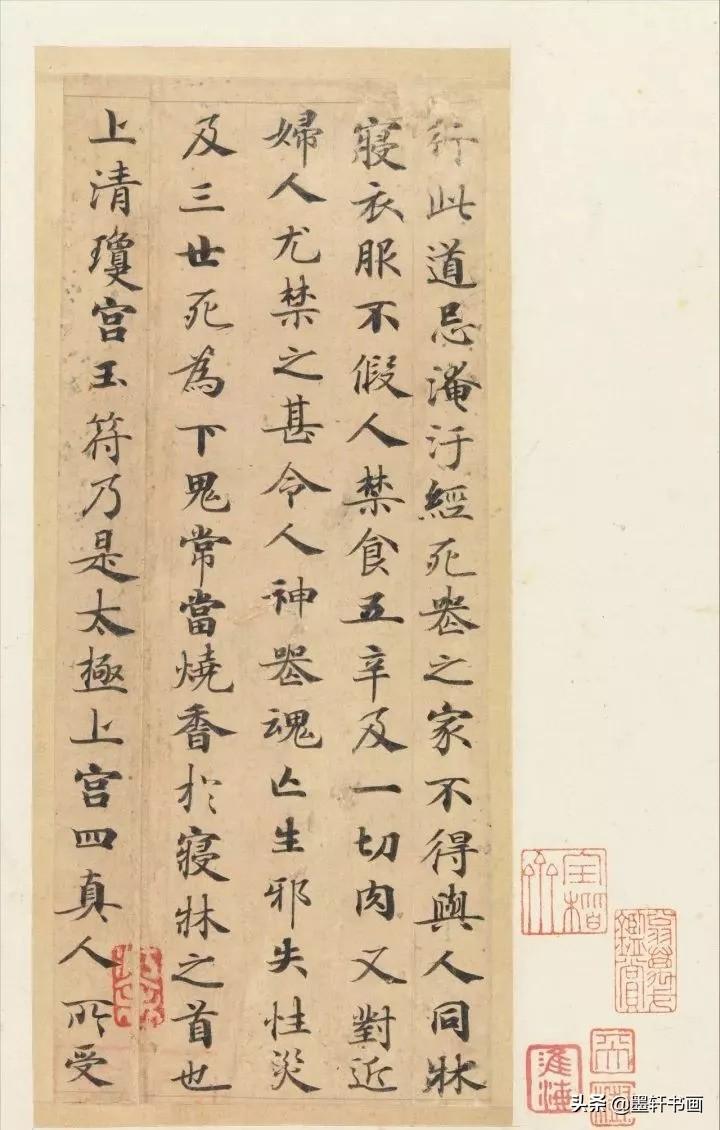 行此道忌淹汙經死丧之家不得與人同牀
寢衣服不假人禁食五辛及一切肉又對近
婦人尤禁之甚令人神丧魂亡生邪失性災
及三世死為下鬼常當燒香於寢牀之首也
上清瓊宮玉符乃是太極上宮四真人所受
頭条 @墨轩书画